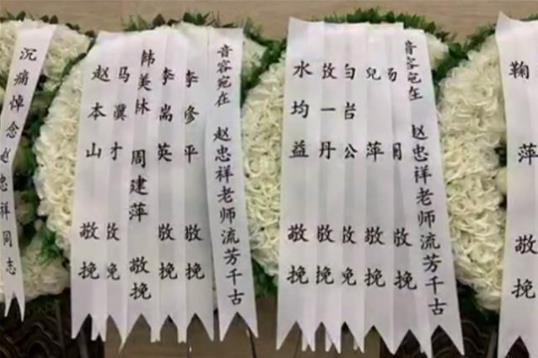 沉痛悼念赵忠祥同志
赵本山 敬挽
马冀才 敬挽
韩美林 周建萍 敬挽
李嵩英 敬挽
李修平 敬挽
音容宛在 赵忠祥老师流芳千古
水均益 敬挽
一丹 敬挽
白岩 敬挽
萍 敬挽
敬挽
音容宛在 赵忠祥老师流芳千古
鞠萍 敬挽